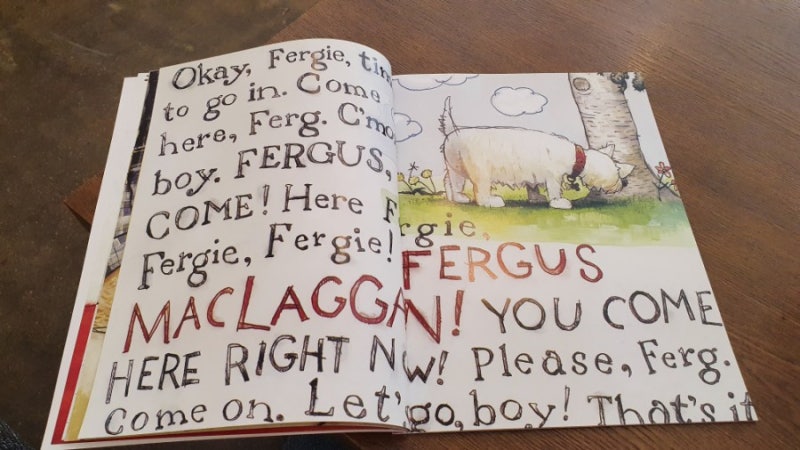 Okay, Fergie, tim
to go in. Come
here, Ferg. C'mo
boy. FERGUS,
COME! Here Frgie,
Fergie, Fergie! FERGUS
MACLAGGAN! YOU COME
HERE RIGHT NW! Please, Ferg.
Come on. Let' go, boy! That's it